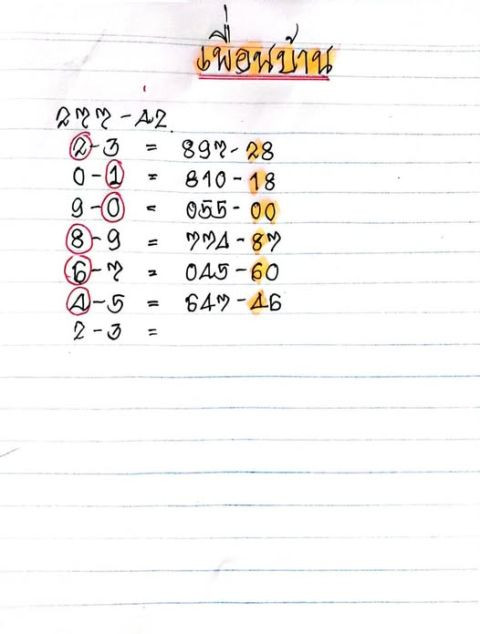 เพื่อนบ้าน
277-42
2-3 = 897-28
0-1 = 810-18
9-0 = 055-00
8-9 = 774-87
6-7 = 045-60
4-5 = 647-46
2-3 =